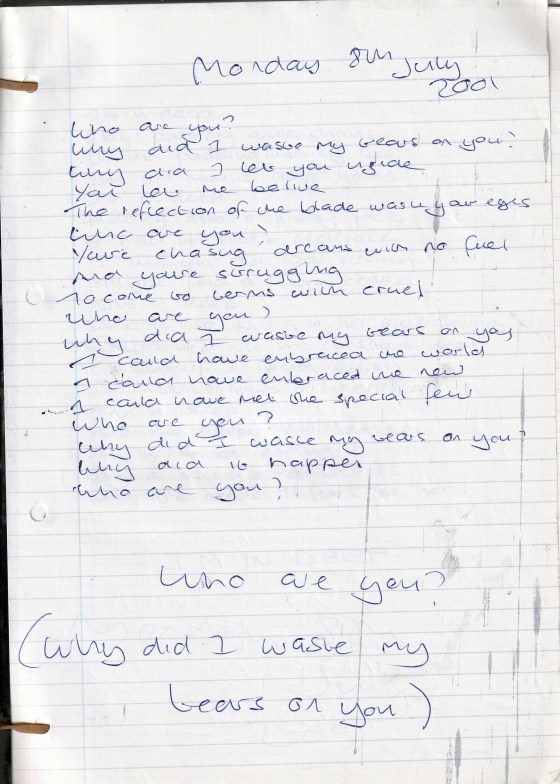 Monday 8th July
2001
Who are you?
Why did I waste my tears on you?
Why did I let you inside
You let me belive
The reflection of the blade was in your eyes
Who are you?
You're chasing dreams with no fuel
And youre struggling
To come to terms with cruel
Who are you?
Why did I waste my tears on you
I could have embraced the world
I could have embraced the new
I could have met the special few
Who are you?
Why did I waste my tears on you?
Why did it happen
Who are you?
Who are you?
(Why did I waste my
tears on you)